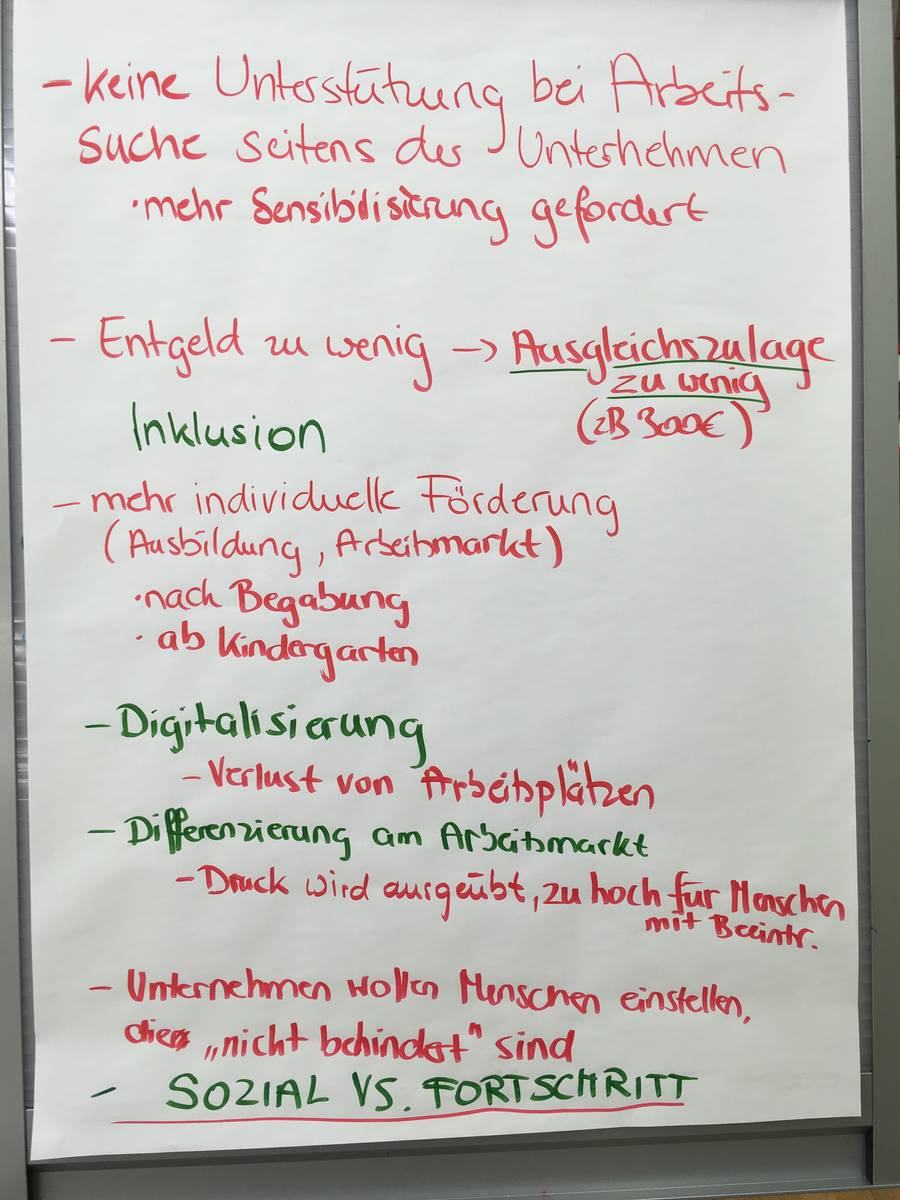 - keine Unterstützung bei Arbeits-
suche seitens des Unternehmen
· mehr Sensibilisierung gefordert
- Entgeld zu wenig -> Ausgleichszulage
zu wenig
(zB 300€)
Inklusion
- mehr individuelle Förderung
(Ausbildung, Arbeitsmarkt)
· nach Begabung
· ab Kindergarten
- Digitalisierung
- Verlust von Arbeitsplätzen
- Differenzierung am Arbeitsmarkt
- Druck wird ausgeübt, zu hoch für Menschen
mit Beeintr.
- Unternehmen wollen Menschen einstellen,
die „nicht behindert" sind
- SOZIAL VS. FORTSCHRITT